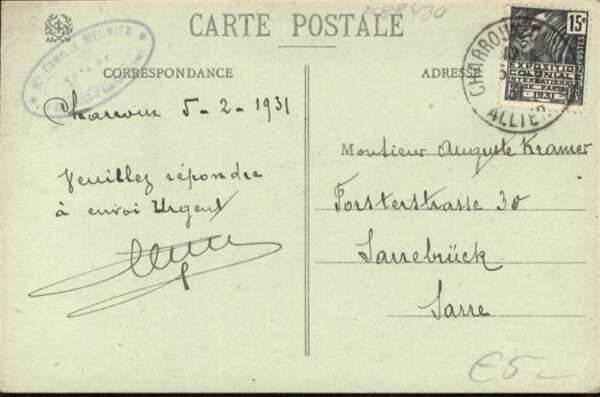 CARTE POSTALE
CORRESPONDANCE
ADRESSE
CAMILLE MEUNIER
15c
POSTES
EXPOSITION
COLONIALE
INTERNATIONALE
DE PARIS
1931
CHARROUX
ALLIER
Charroux 5-2-1931
Veuillez répondre
à envoi Urgent
Monsieur Auguste Kramer
Forsterstrasse 30
Sarrebrück
Sarre
€5-